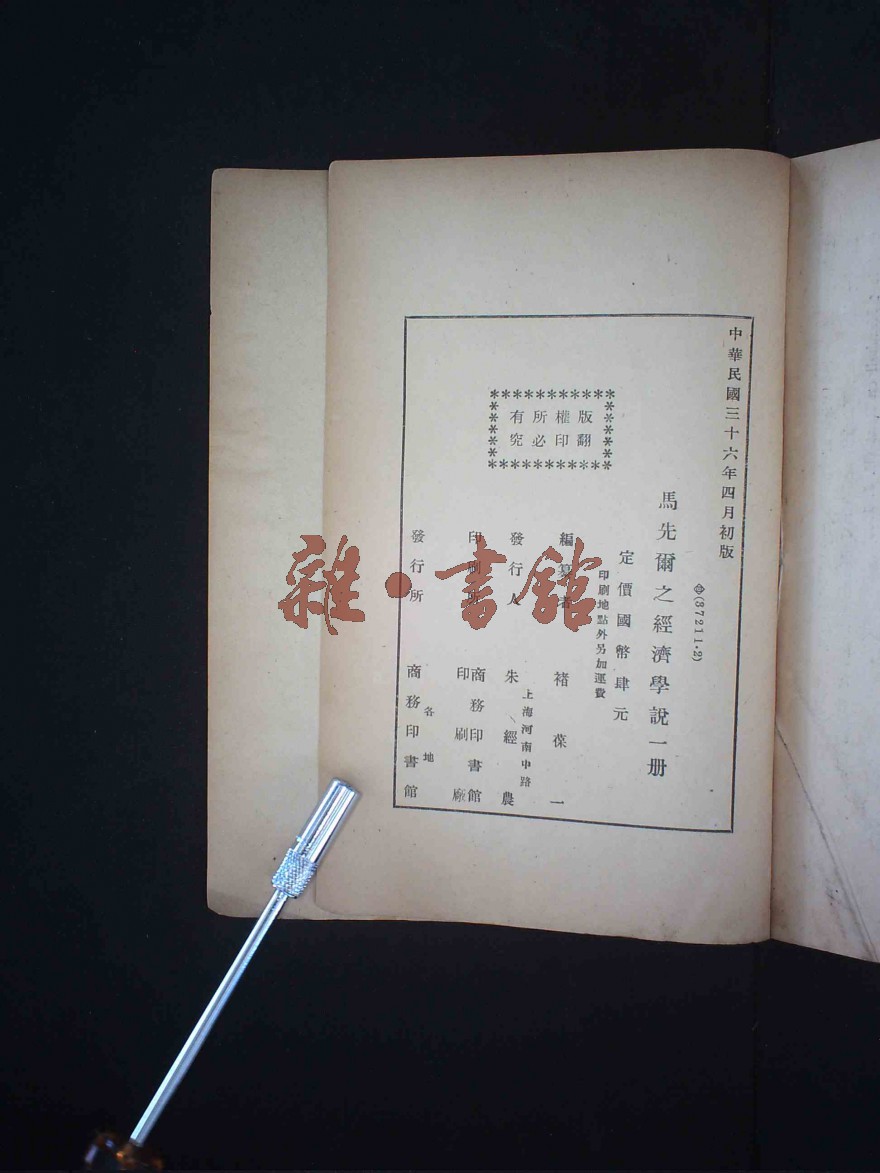 中華民國三十六年四月初版
(37211·2)
馬先爾之經濟學說一册
定價國幣肆元
印刷地點外另加運費
版權所有
翻印必究
編纂者 褚葆一
發行人 朱經農
上海河南中路
印刷所 商務印書館印刷廠
發行所 商務印書館
各地
雜·書館